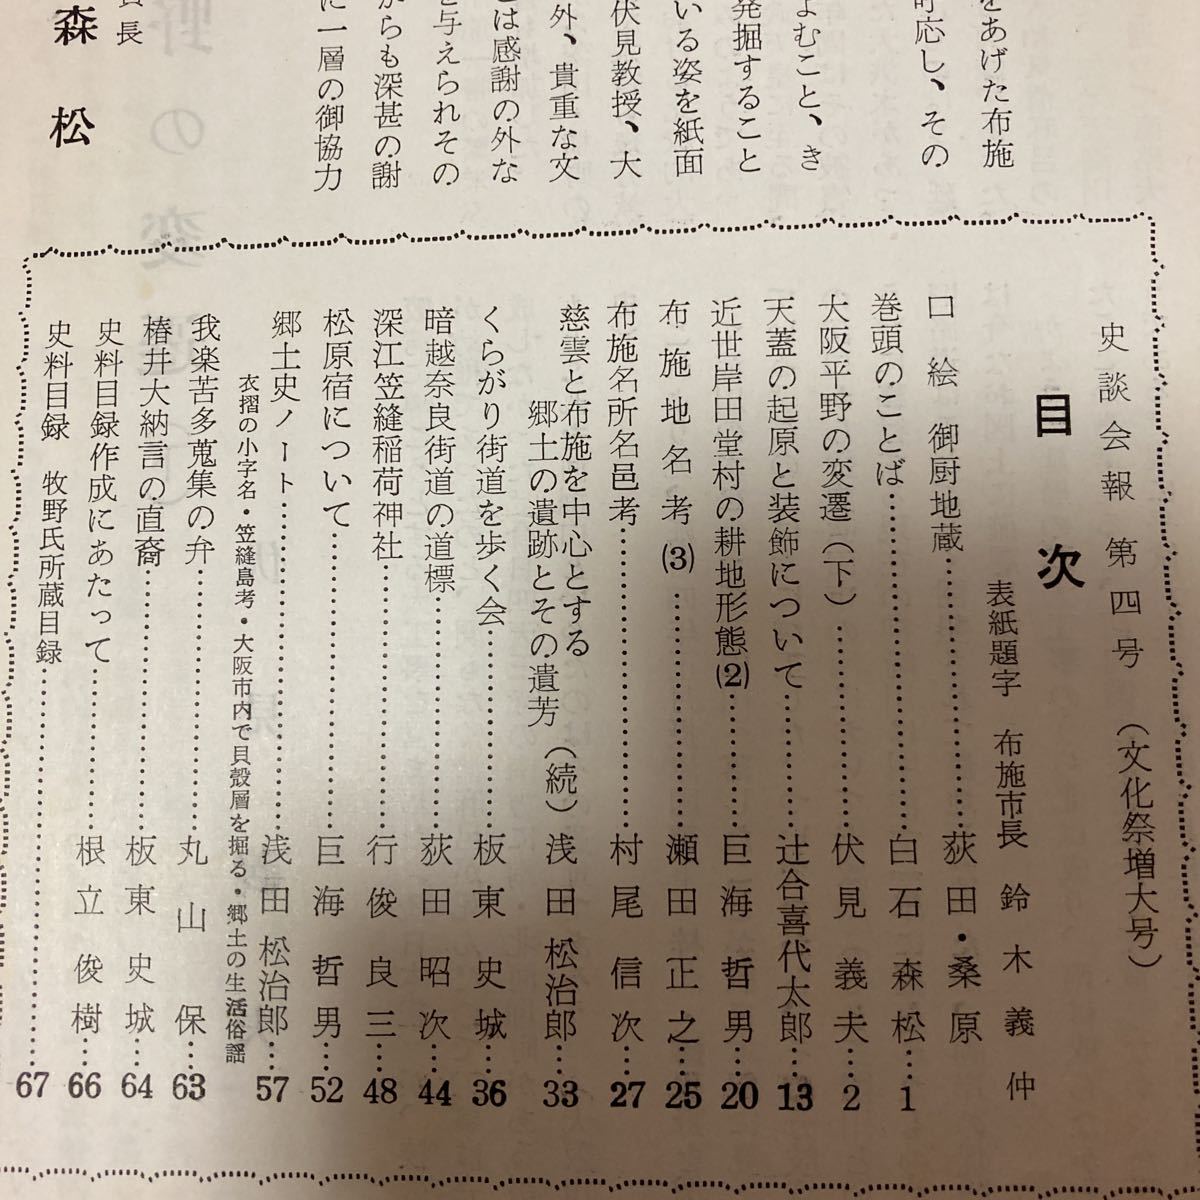 をあげた布施
応し、その
よむこと、き
発掘すること
いる姿を紙面
伏見教授、大
外、貴重な文
とは感謝の外な
を与えられその
からも深甚の謝
に一層の御協力
長
森松
史談会報 第四号 (文化祭増大号)
目次
表紙題字 布施市長 鈴木義仲
口絵 御厨地蔵……荻田・桑原
巻頭のことば……白石森松……1
大阪平野の変遷(下)……伏見義夫……2
天蓋の起原と装飾について……辻合喜代太郎……13
近世岸田堂村の耕地形態(2)……巨海哲男……20
布施地名考(3)……瀬田正之……25
布施名所名邑考……村尾信次……27
慈雲と布施を中心とする
郷土の遺跡とその遺芳(続) 浅田松治郎……33
くらがり街道を歩く会……板東史城……36
暗越奈良街道の道標……荻田昭次……44
深江笠縫稲荷神社……行俊良三……48
松原宿について……巨海哲男……52
郷土史ノート……浅田松治郎……57
衣摺の小字名・笠縫島考・大阪市内で貝殻層を掘る・郷土の生活俗謡
我楽苦多蒐集の弁……丸山保……63
椿井大納言の直裔……板東史城……64
史料目録作成にあたって……根立俊樹……66
史料目録 牧野氏所蔵目録……67